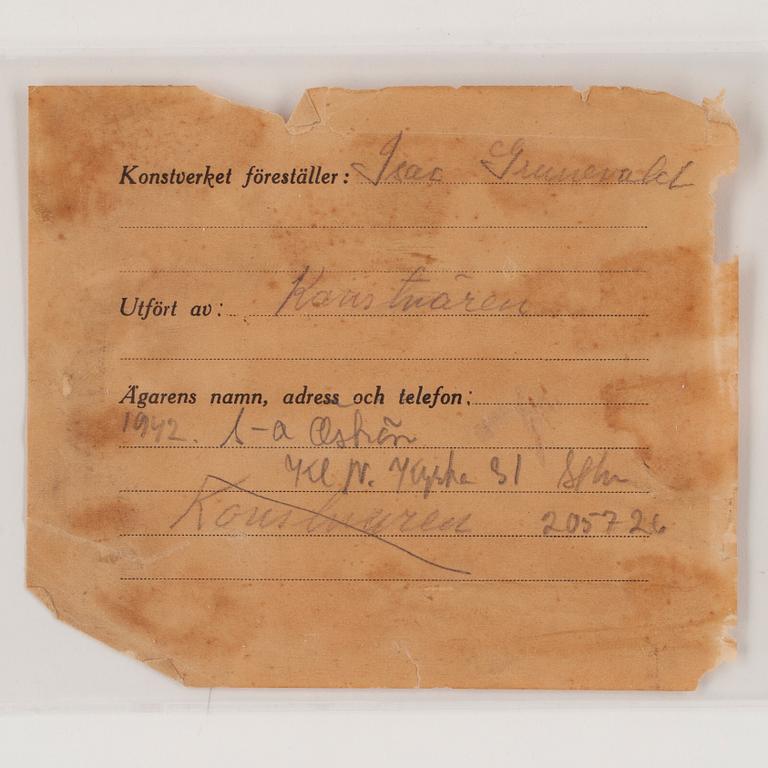 Konstverket föreställer: Isac Grunewald
Utfört av: Konstnären
Ägarens namn, adress och telefon:
1942.
Kl. N. Kyrka 31 Sthlm
Konstnären 205726